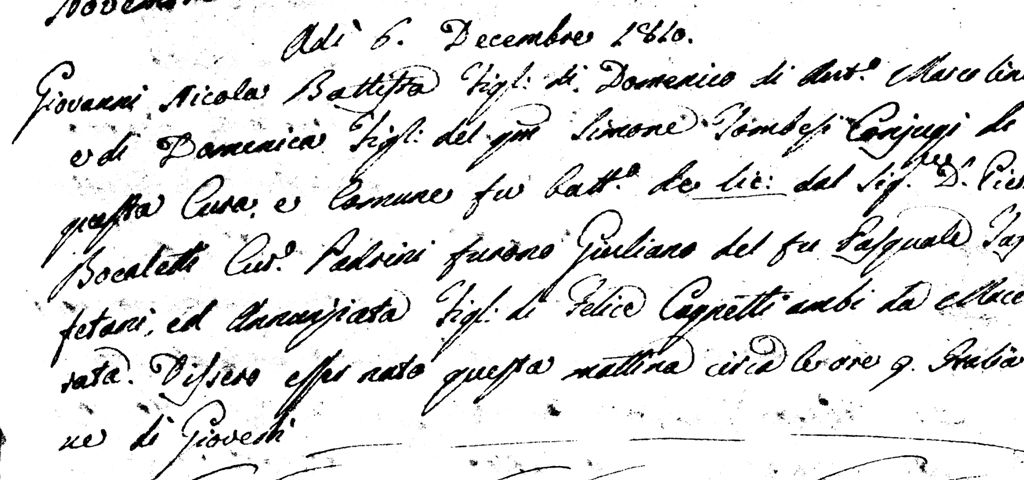 Adì 6. Decembre 1810.
Giovanni Nicola Battista figl: di Domenico di Ant.º Marcolin
e di Domenica figl: del qm Simone Tombesi Conjugi di
questa Cura, e Comune fu batt.º de lic: dal Sig.re D. Pie
Bocaletti Cur.º Padrini furono Giuliano del fu Pasquale
fetani, ed Annunziata figl: di Felice Cagnetti ambi da Mace
rata. Dissero esser nato questa mattina circa le ore 9. Italia
ne di Giovedì